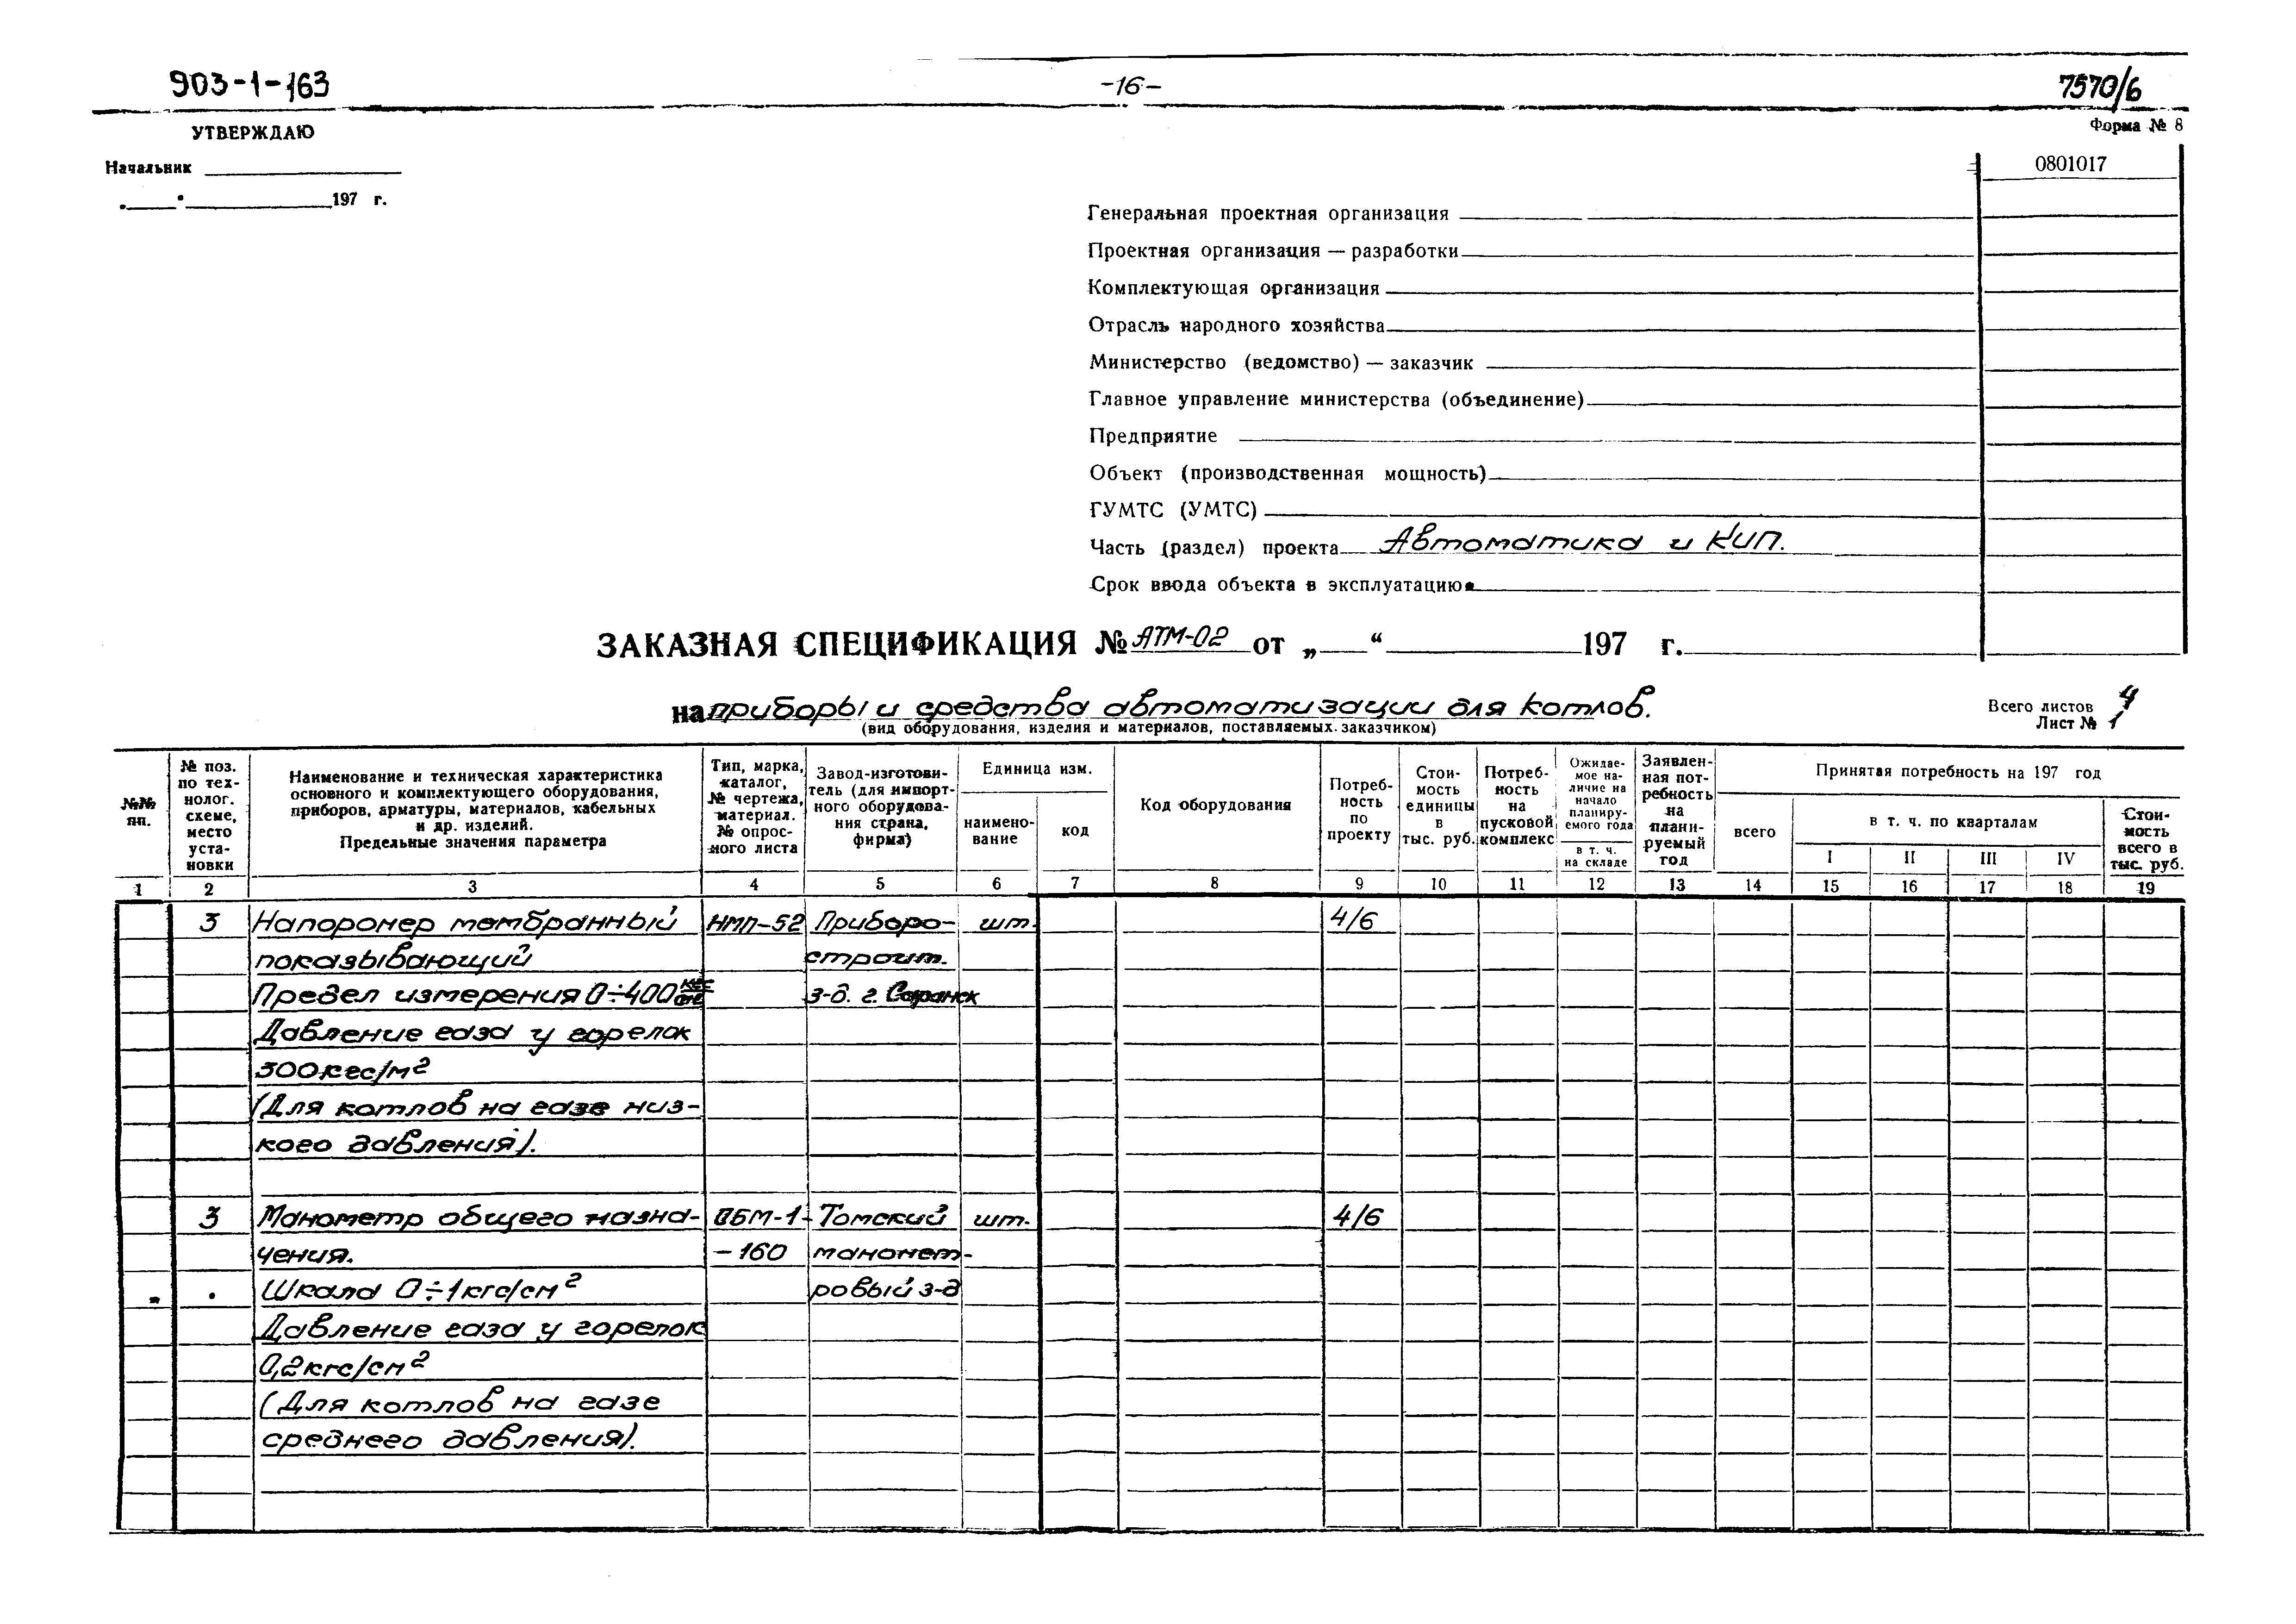 903-1-163
-16-
7570/6
УТВЕРЖДАЮ
Форма № 8
Начальник
197 г.
0801017
Генеральная проектная организация
Проектная организация — разработки
Комплектующая организация
Отрасль народного хозяйства
Министерство (ведомство) — заказчик
Главное управление министерства (объединение)
Предприятие
Объект (производственная мощность)
ГУМТС (УМТС)
Часть (раздел) проекта Автоматика и КИП.
Срок ввода объекта в эксплуатацию
ЗАКАЗНАЯ СПЕЦИФИКАЦИЯ № АТМ-02 от „ “ 197 г.
на приборы и средства автоматизации для котлов.
(вид оборудования, изделия и материалов, поставляемых заказчиком)
Всего листов 4
Лист № 1
№№
пп.
№ поз.
по тех-
нолог.
схеме,
место
уста-
новки
Наименование и техническая характеристика
основного и комплектующего оборудования,
приборов, арматуры, материалов, кабельных
и др. изделий.
Предельные значения параметра
Тип, марка,
каталог,
№ чертежа,
материал.
№ опрос-
ного листа
Завод-изготови-
тель (для импорт-
ного оборудова-
ния страна,
фирма)
Единица изм.
наимено-
вание
код
Код оборудования
Потреб-
ность
по
проекту
Стои-
мость
единицы
в
тыс. руб.
Потреб-
ность
на
пусковой
комплекс
Ожидае-
мое на-
личие на
начало
планиру-
емого года
в т. ч.
на складе
Заявлен-
ная пот-
ребность
на
плани-
руемый
год
Принятая потребность на 197 год
всего
в т. ч. по кварталам
I II III IV
Стои-
мость
всего в
тыс. руб.
1 2 3 4 5 6 7 8 9 10 11 12 13 14 15 16 17 18 19
3 Напоромер мембранный НМП-52 Приборо- шт. 4/6
показывающий строит.
Предел измерения 0÷400 кгс/м² з-д. г. Саранск
Давление газа у горелок
300кгс/м²
(Для котлов на газе низ-
кого давления).
3 Манометр общего назна- ОБМ-1- Томский шт. 4/6
чения. -160 маномет-
Шкала 0÷1кгс/см² ровый з-д
Давление газа у горелок
0,2кгс/см²
(Для котлов на газе
среднего давления).